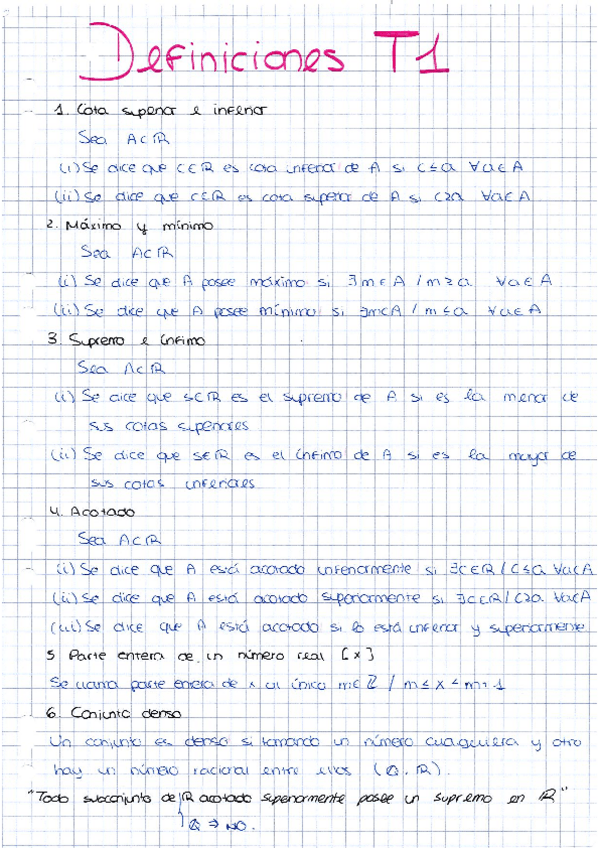 Definiciones T1
1. Cota superior e inferior
Sea A⊂ℝ
(i) Se dice que c∈ℝ es cota inferior de A si c≤a ∀a∈A
(ii) Se dice que c∈ℝ es cota superior de A si c≥a ∀a∈A
2. Máximo y mínimo
Sea A⊂ℝ
(i) Se dice que A posee máximo si ∃m∈A / m≥a ∀a∈A
(ii) Se dice que A posee mínimo si ∃m∈A / m≤a ∀a∈A
3. Supremo e ínfimo
Sea A⊂ℝ
(i) Se dice que s∈ℝ es el supremo de A si es la menor de
sus cotas superiores
(ii) Se dice que s∈ℝ es el ínfimo de A si es la mayor de
sus cotas inferiores
4. Acotado
Sea A⊂ℝ
(i) Se dice que A está acotado inferiormente si ∃c∈ℝ / c≤a ∀a∈A
(ii) Se dice que A está acotado superiormente si ∃c∈ℝ / c≥a ∀a∈A
(iii) Se dice que A está acotado si lo está inferior y superiormente
5 Parte entera de un número real [x]
Se llama parte entera de x al único m∈ℤ / m≤x<m+1
6. Conjunto denso
Un conjunto es denso si tomando un número cualquiera y otro
hay un número racional entre ellos (ℚ, ℝ).
"Todo subconjunto de ℝ acotado superiormente posee un supremo en ℝ"
ℚ ⇒ NO.